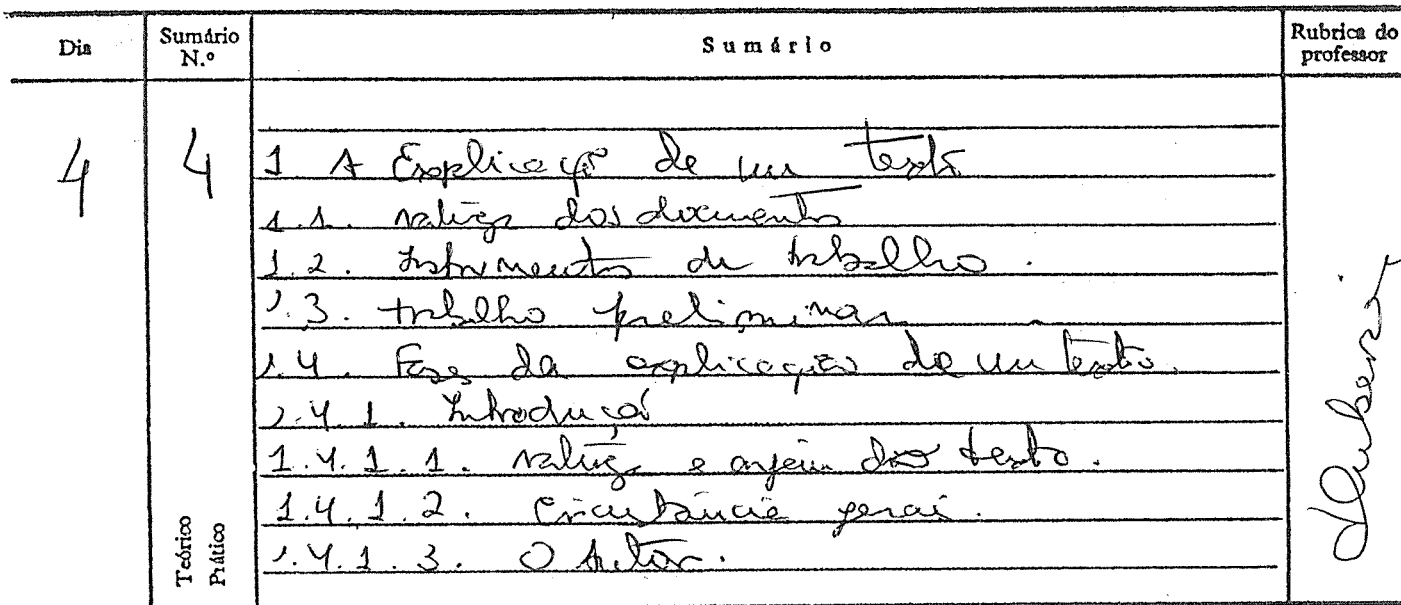 Dia Sumário N.º Sumário Rubrica do professor
4 4 1 A Explicação de um texto
1.1. natureza dos documentos
1.2. Instrumentos de trabalho.
1.3. trabalho preliminar
1.4. Fases da explicação de um texto.
1.4.1. Introdução
1.4.1.1. natureza e origem do texto.
1.4.1.2. Circunstância gerais.
1.4.1.3. O Autor.
Teórico
Prático